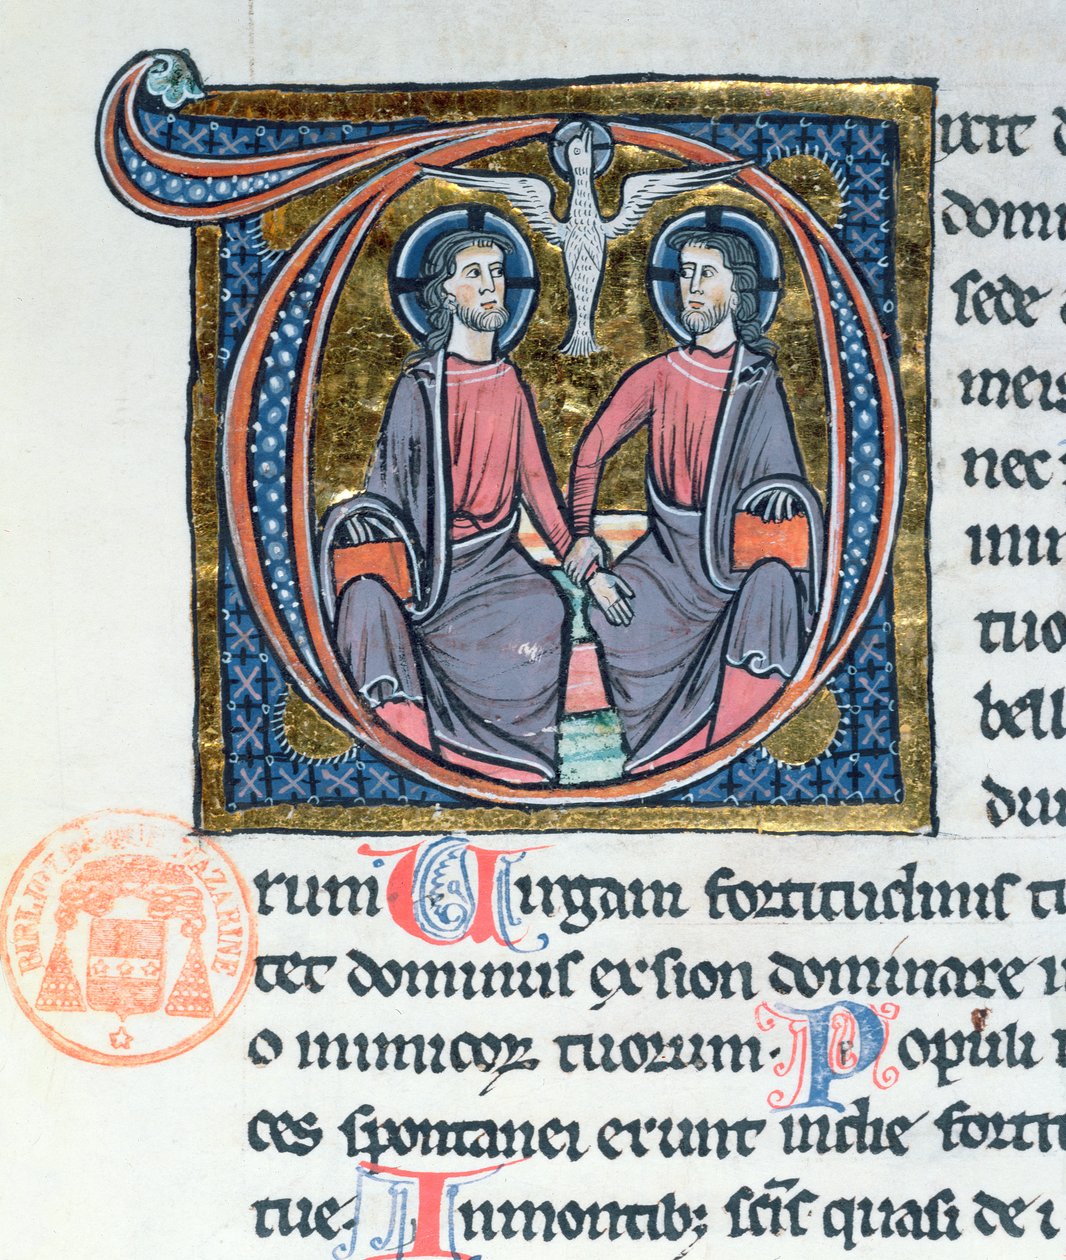 Dixit
domi
sede
meis
nec
inim
tuo
bell
dru
rum Virgam fortitudinis tu
tet dominus ex sion dominare i
o inimicoꝝ tuorum· Populi
ces spontanei erunt in die forti
tue· In montibꝫ scīs quasi de
BIBLIOTHEQUE MAZARINE